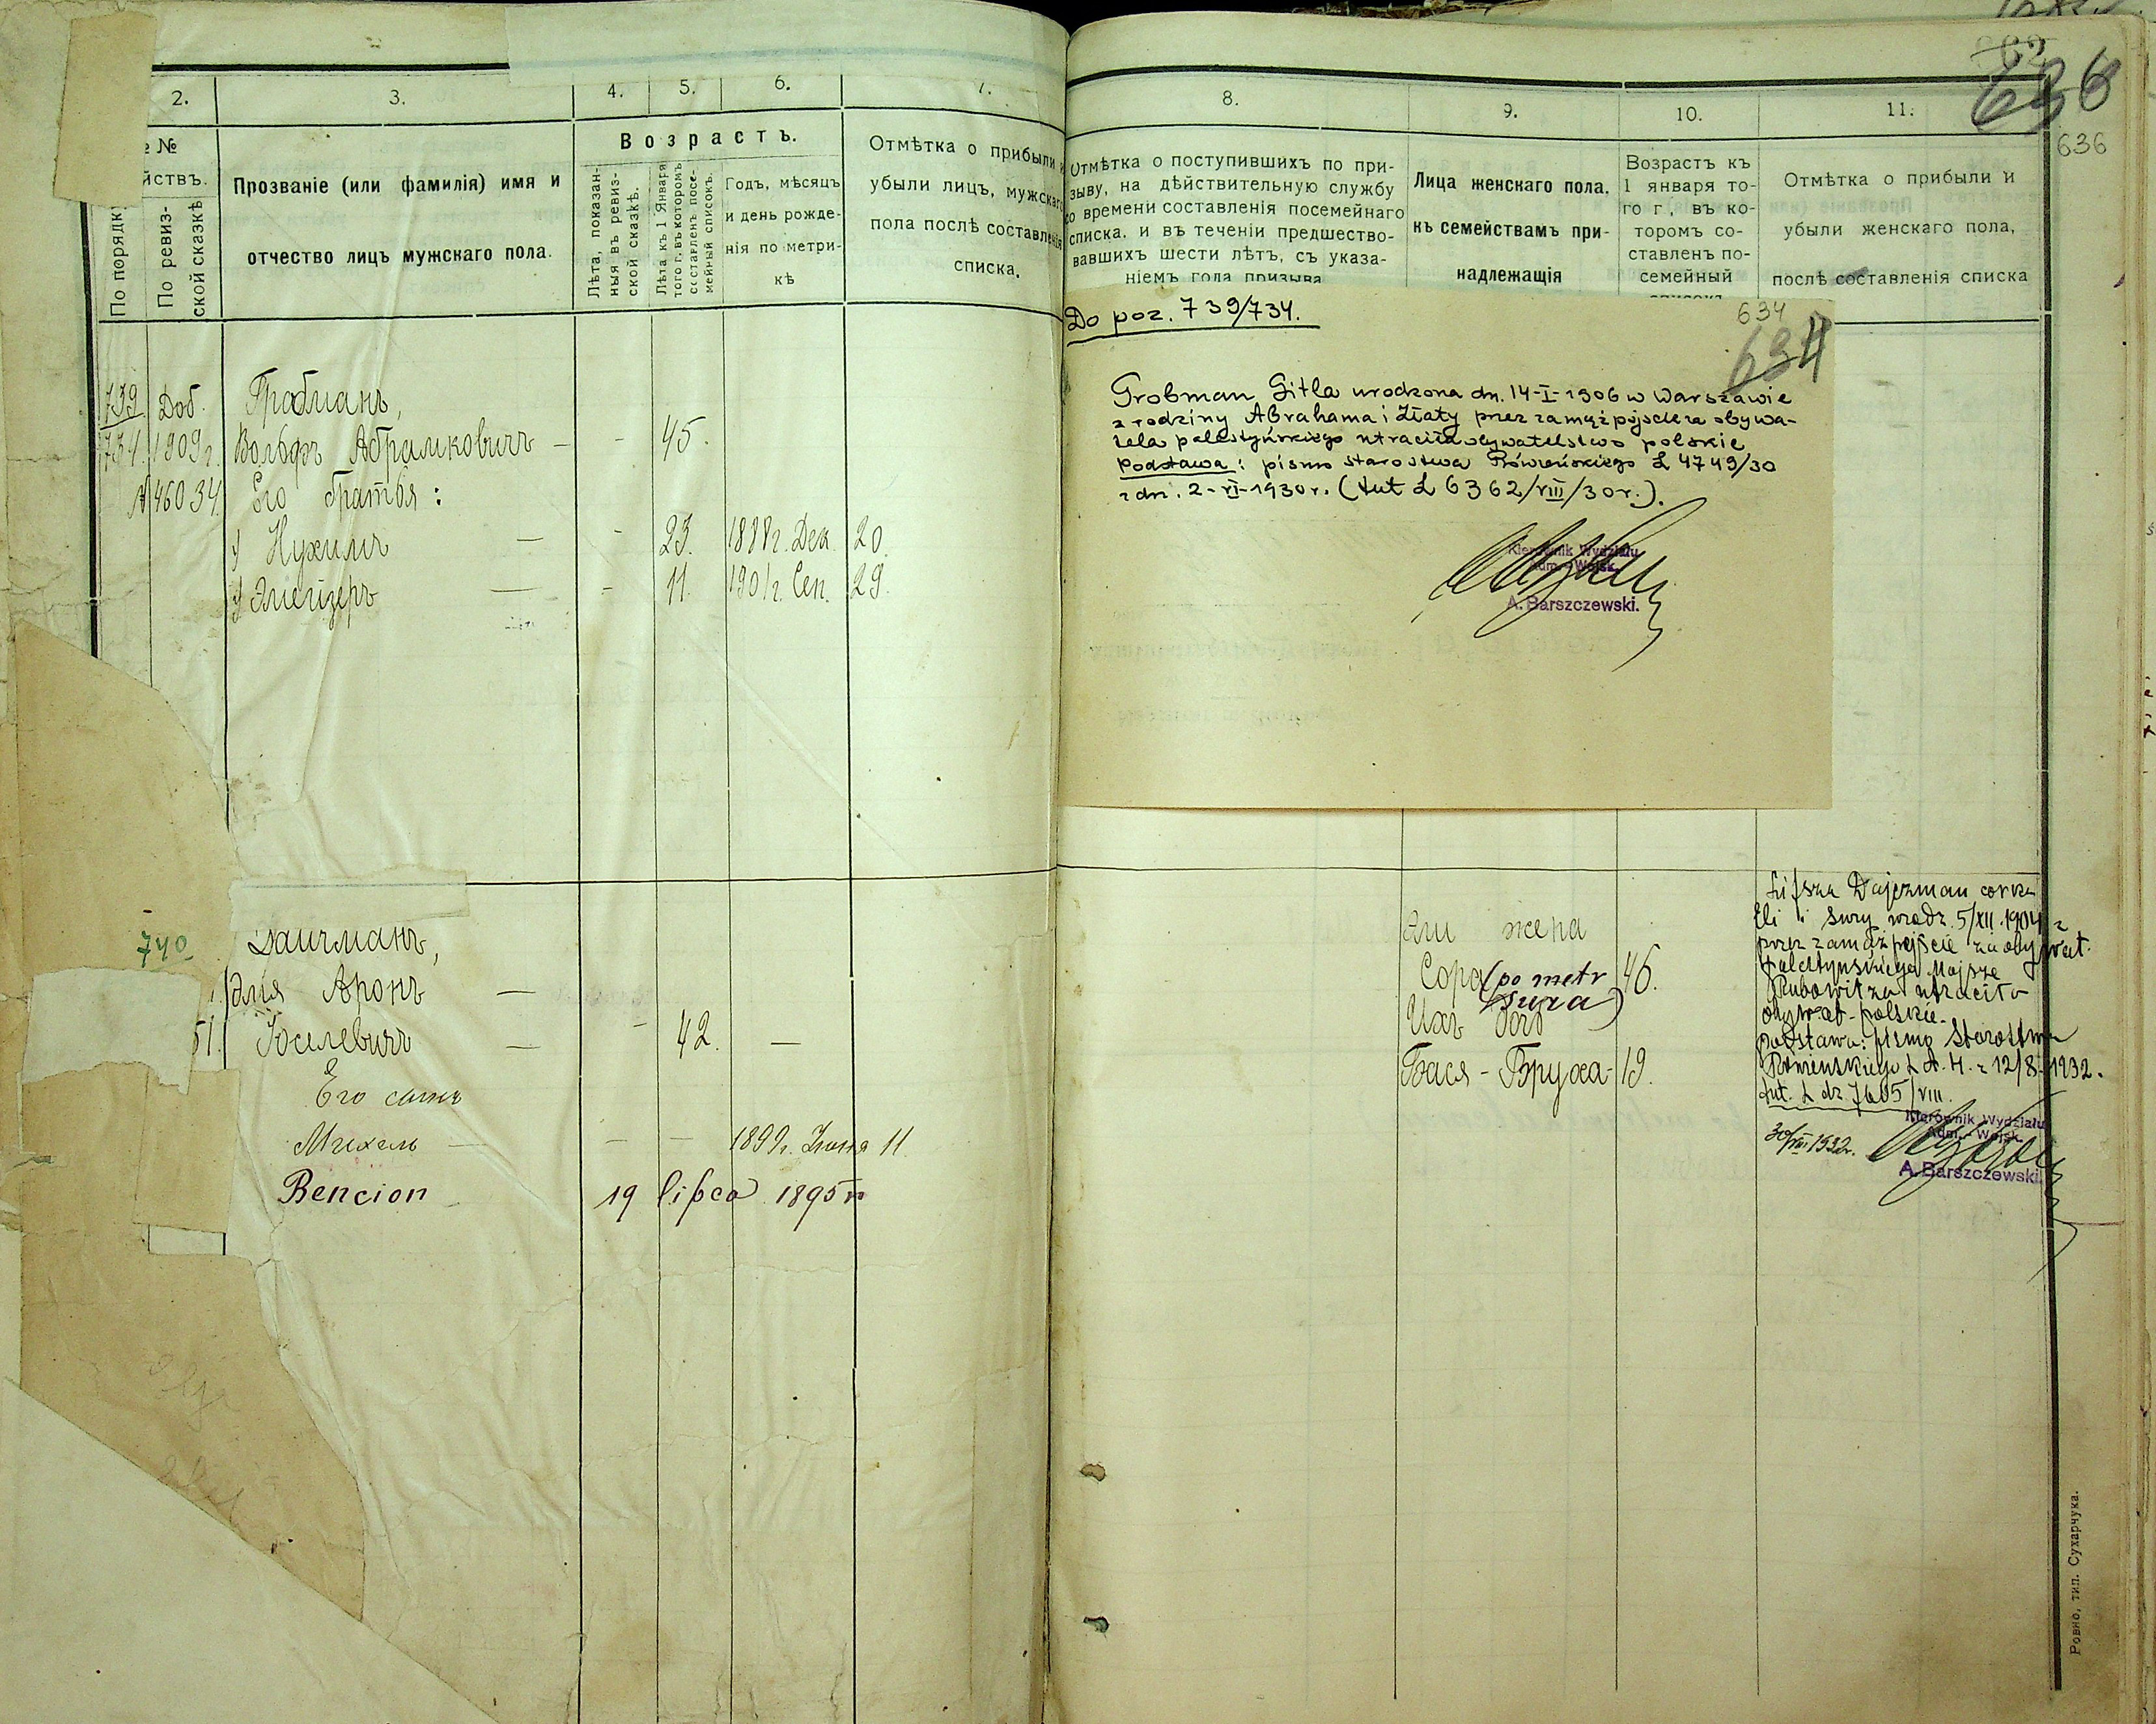 2.
3.
4.
5.
6.
7.
№
йствъ.
По порядку
По ревиз-
ской сказкѣ
Прозваніе (или фамилія) имя и
отчество лицъ мужскаго пола.
Возрастъ.
Лѣта, показан-
ныя въ ревиз-
ской сказкѣ.
Лѣта къ 1 Января
того г. въ которомъ
составленъ посе-
мейный списокъ.
Годъ, мѣсяцъ
и день рожде-
нія по метри-
кѣ
Отмѣтка о прибыли и
убыли лицъ, мужскаго
пола послѣ составленія
списка.
739
734.
Доб.
1909 г.
№ 46034.
Грабманъ,
Вольфъ Абрамковичъ — - 45.
Его братья:
Нухимъ — - 23. 1888 г. Дек. 20.
Элейзеръ — - 11. 1901 г. Сен. 29.
740
Дайчманъ,
Элія Аронъ —
51. Юселевичъ — - 42. —
Его сынъ
Михель — — — 1899 г. Іюня 11
Bencion 19 lipca 1895 r
8.
9.
10.
11.
662
636
636
Отмѣтка о поступившихъ по при-
зыву, на дѣйствительную службу
со времени составленія посемейнаго
списка, и въ теченіи предшество-
вавшихъ шести лѣтъ, съ указа-
ніемъ года призыва
Лица женскаго пола,
къ семействамъ при-
надлежащія
Возрастъ къ
1 января то-
го г, въ ко-
торомъ со-
ставленъ по-
семейный
списокъ
Отмѣтка о прибыли и
убыли женскаго пола,
послѣ составленія списка
Do poz. 739/734.
634
634
Grobman Gitla urodzona dn. 14-I-1906 w Warszawie
z rodziny Abrahama i Złaty przez zamążpójście za obywa-
tela palestyńskiego utraciła obywatelstwo polskie
Podstawa: pismo starostwa Rówieńskiego L 4749/30
z dn. 2-VI-1930 r. (tut L 6362/VIII/30 r.).
Kierownik Wydziału
Adm.-Wojsk.
A. Barszczewski.
Эли жена
Сора (po metr 46.
Sura)
Ихъ дочь
Бася-Бруха- 19.
Lifsza Dajczman córka
Eli i Sury urodz. 5/XII.1904 r
przez zamążpójście za obywat.
palestyńskiego Mojsze
Rubowitza utraciła
obywat- polskie.
podstawa: pismo Starostwa
Rówieńskiego L A.H. z 12/8-1932.
tut. L dz 7605/VIII.
Kierownik Wydziału
Adm.-Wojsk.
30/VIII 1932 r.
A. Barszczewski.
Ровно, тип. Сухарчука.